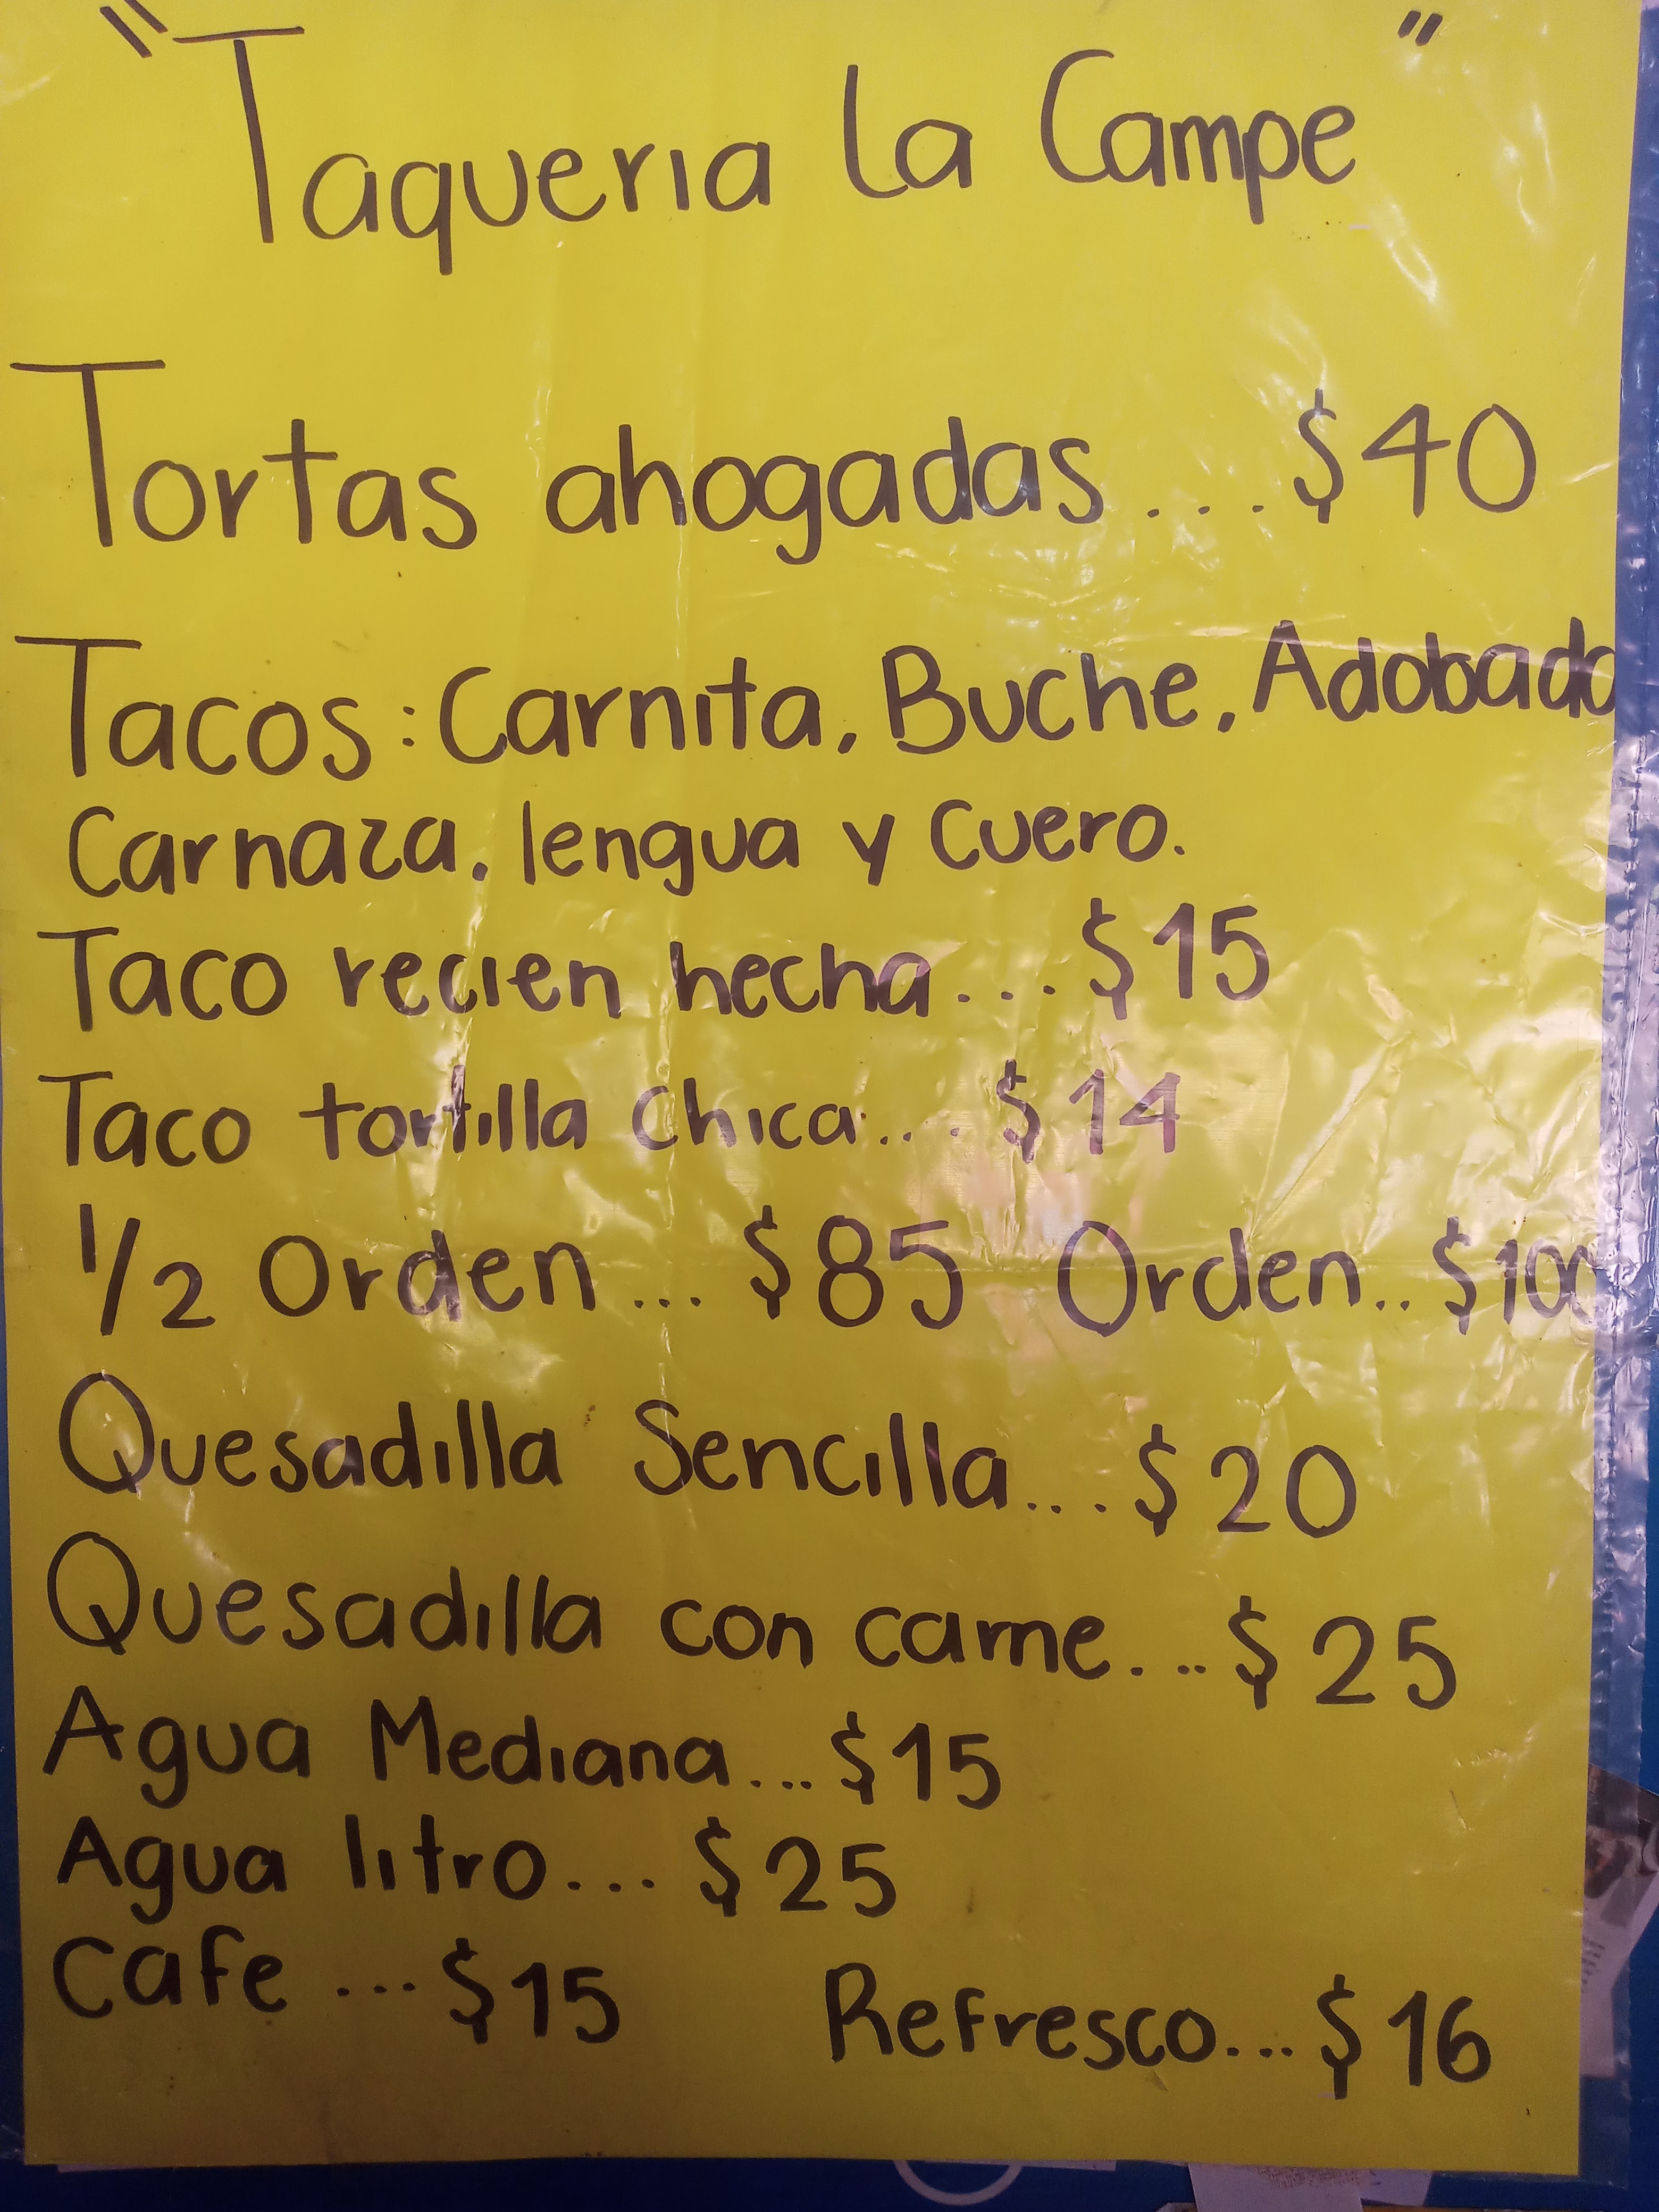 "Taqueria la Campe"
Tortas ahogadas...$40
Tacos: Carnita, Buche, Adobada
Carnaza, lengua y Cuero.
Taco recien hecha...$15
Taco tortilla Chica....$14
1/2 Orden...$85 Orden..$100
Quesadilla Sencilla....$20
Quesadilla con carne...$25
Agua Mediana...$15
Agua litro...$25
Cafe ...$15 Refresco...$16